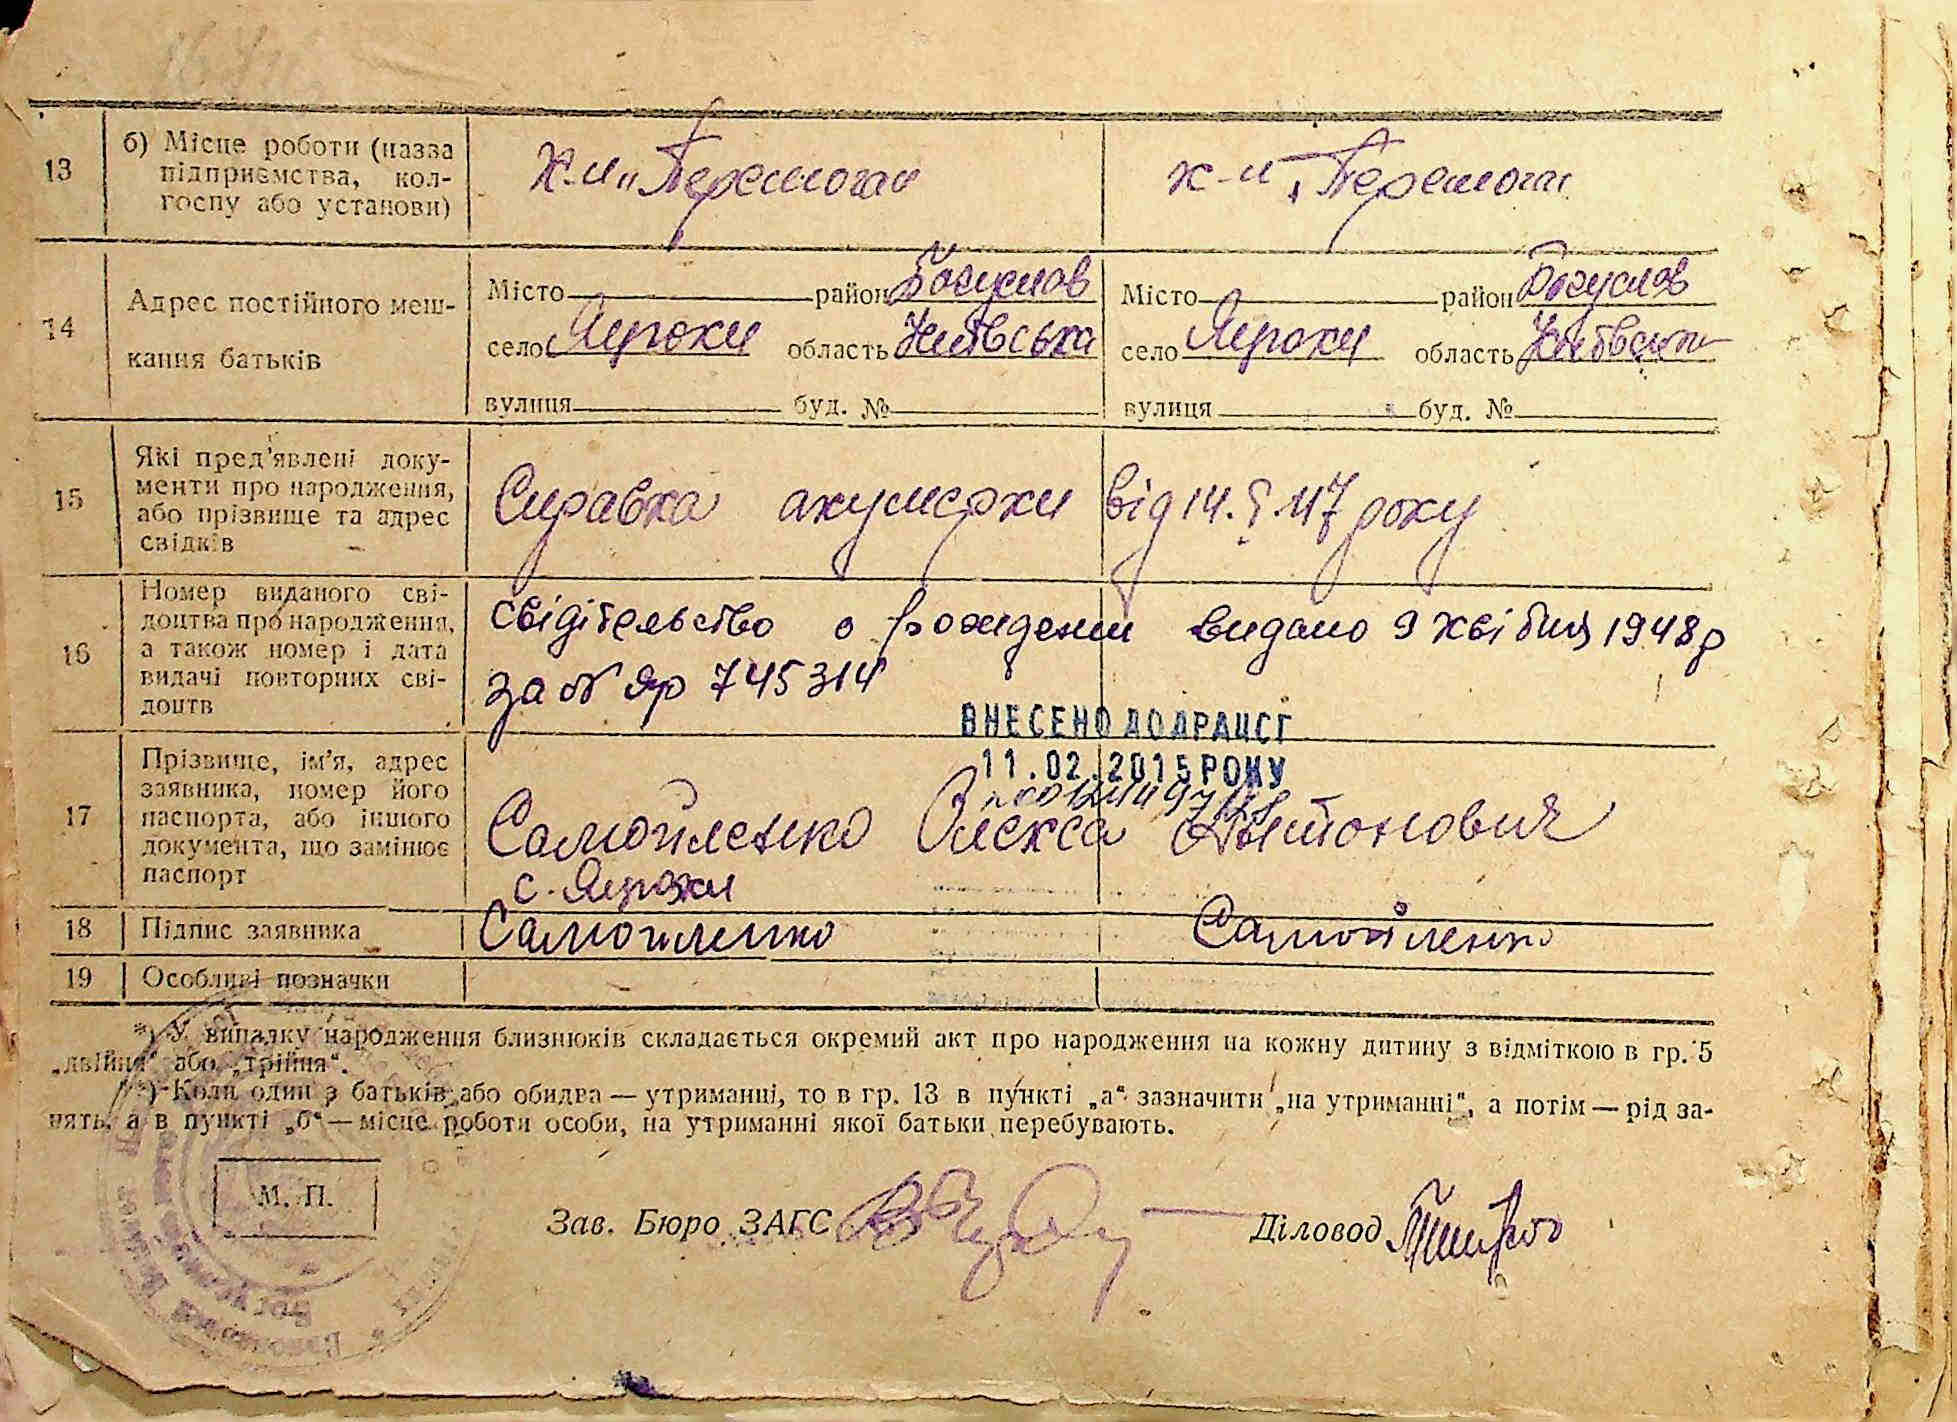 13 б) Місце роботи (назва підприємства, колгоспу або установи) к-п „Перемога" к-п „Перемога"
14 Адрес постійного мешкання батьків
Місто район Богуслов Місто район Богуслов
село область Київська село область Київська
вулиця буд. № вулиця буд. №
15 Які пред'явлені документи про народження, або прізвище та адрес свідків Справка акушерки від 14.5.47 року
16 Номер виданого свідоцтва про народження, а також номер і дата видачі повторних свідоцтв
свідітельство о рождении видано 9 квітня 1948р
за № яр 745314
ВНЕСЕНО ДО ДРАЦСГ
11.02.2015 РОКУ
17 Прізвище, ім'я, адрес заявника, номер його паспорта, або іншого документа, що замінює паспорт
Самойленко Олекса Антонович
с.
18 Підпис заявника Самойленко Самойленко
19 Особливі позначки
*) У випадку народження близнюків складається окремий акт про народження на кожну дитину з відміткою в гр. 5
„двійня" або „трійня".
**) Коли один з батьків або обидва — утриманні, то в гр. 13 в пункті „а" зазначити „на утриманні", а потім — рід за-
нять, а в пункті „б" — місце роботи особи, на утриманні якої батьки перебувають.
М. П.
Зав. Бюро ЗАГС Діловод